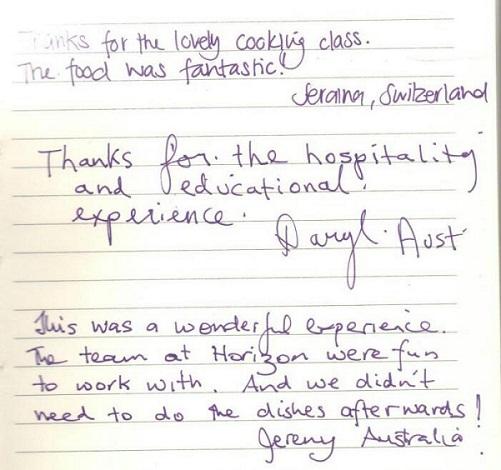 Thanks for the lovely cooking class.
The food was fantastic!
Seraina, Switzerland
Thanks for the hospitality
and educational
experience.
Daryl. Aust
This was a wonderful experience.
The team at Horizon were fun
to work with. And we didn't
need to do the dishes afterwards!
Jeremy Australia